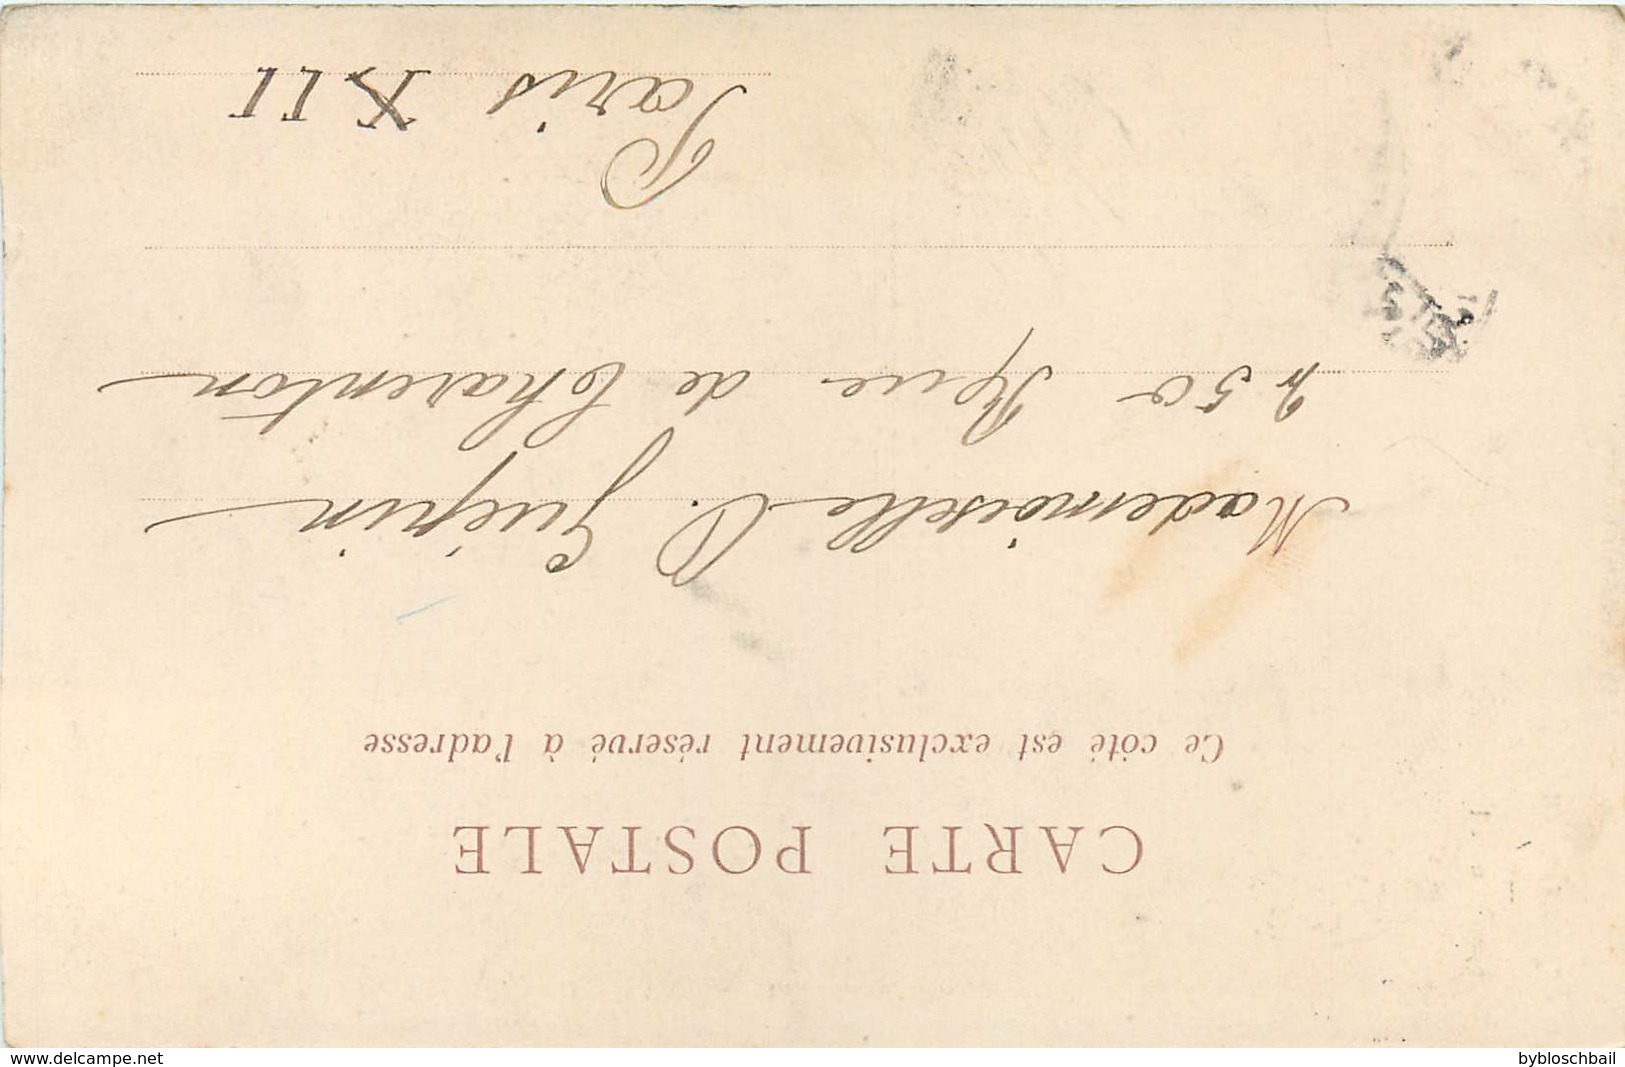 CARTE POSTALE
Ce côté est exclusivement réservé à l'adresse
Mademoiselle O. Guérin
250 Rue de Charenton
Paris XII
www.delcampe.net
bybloschbail